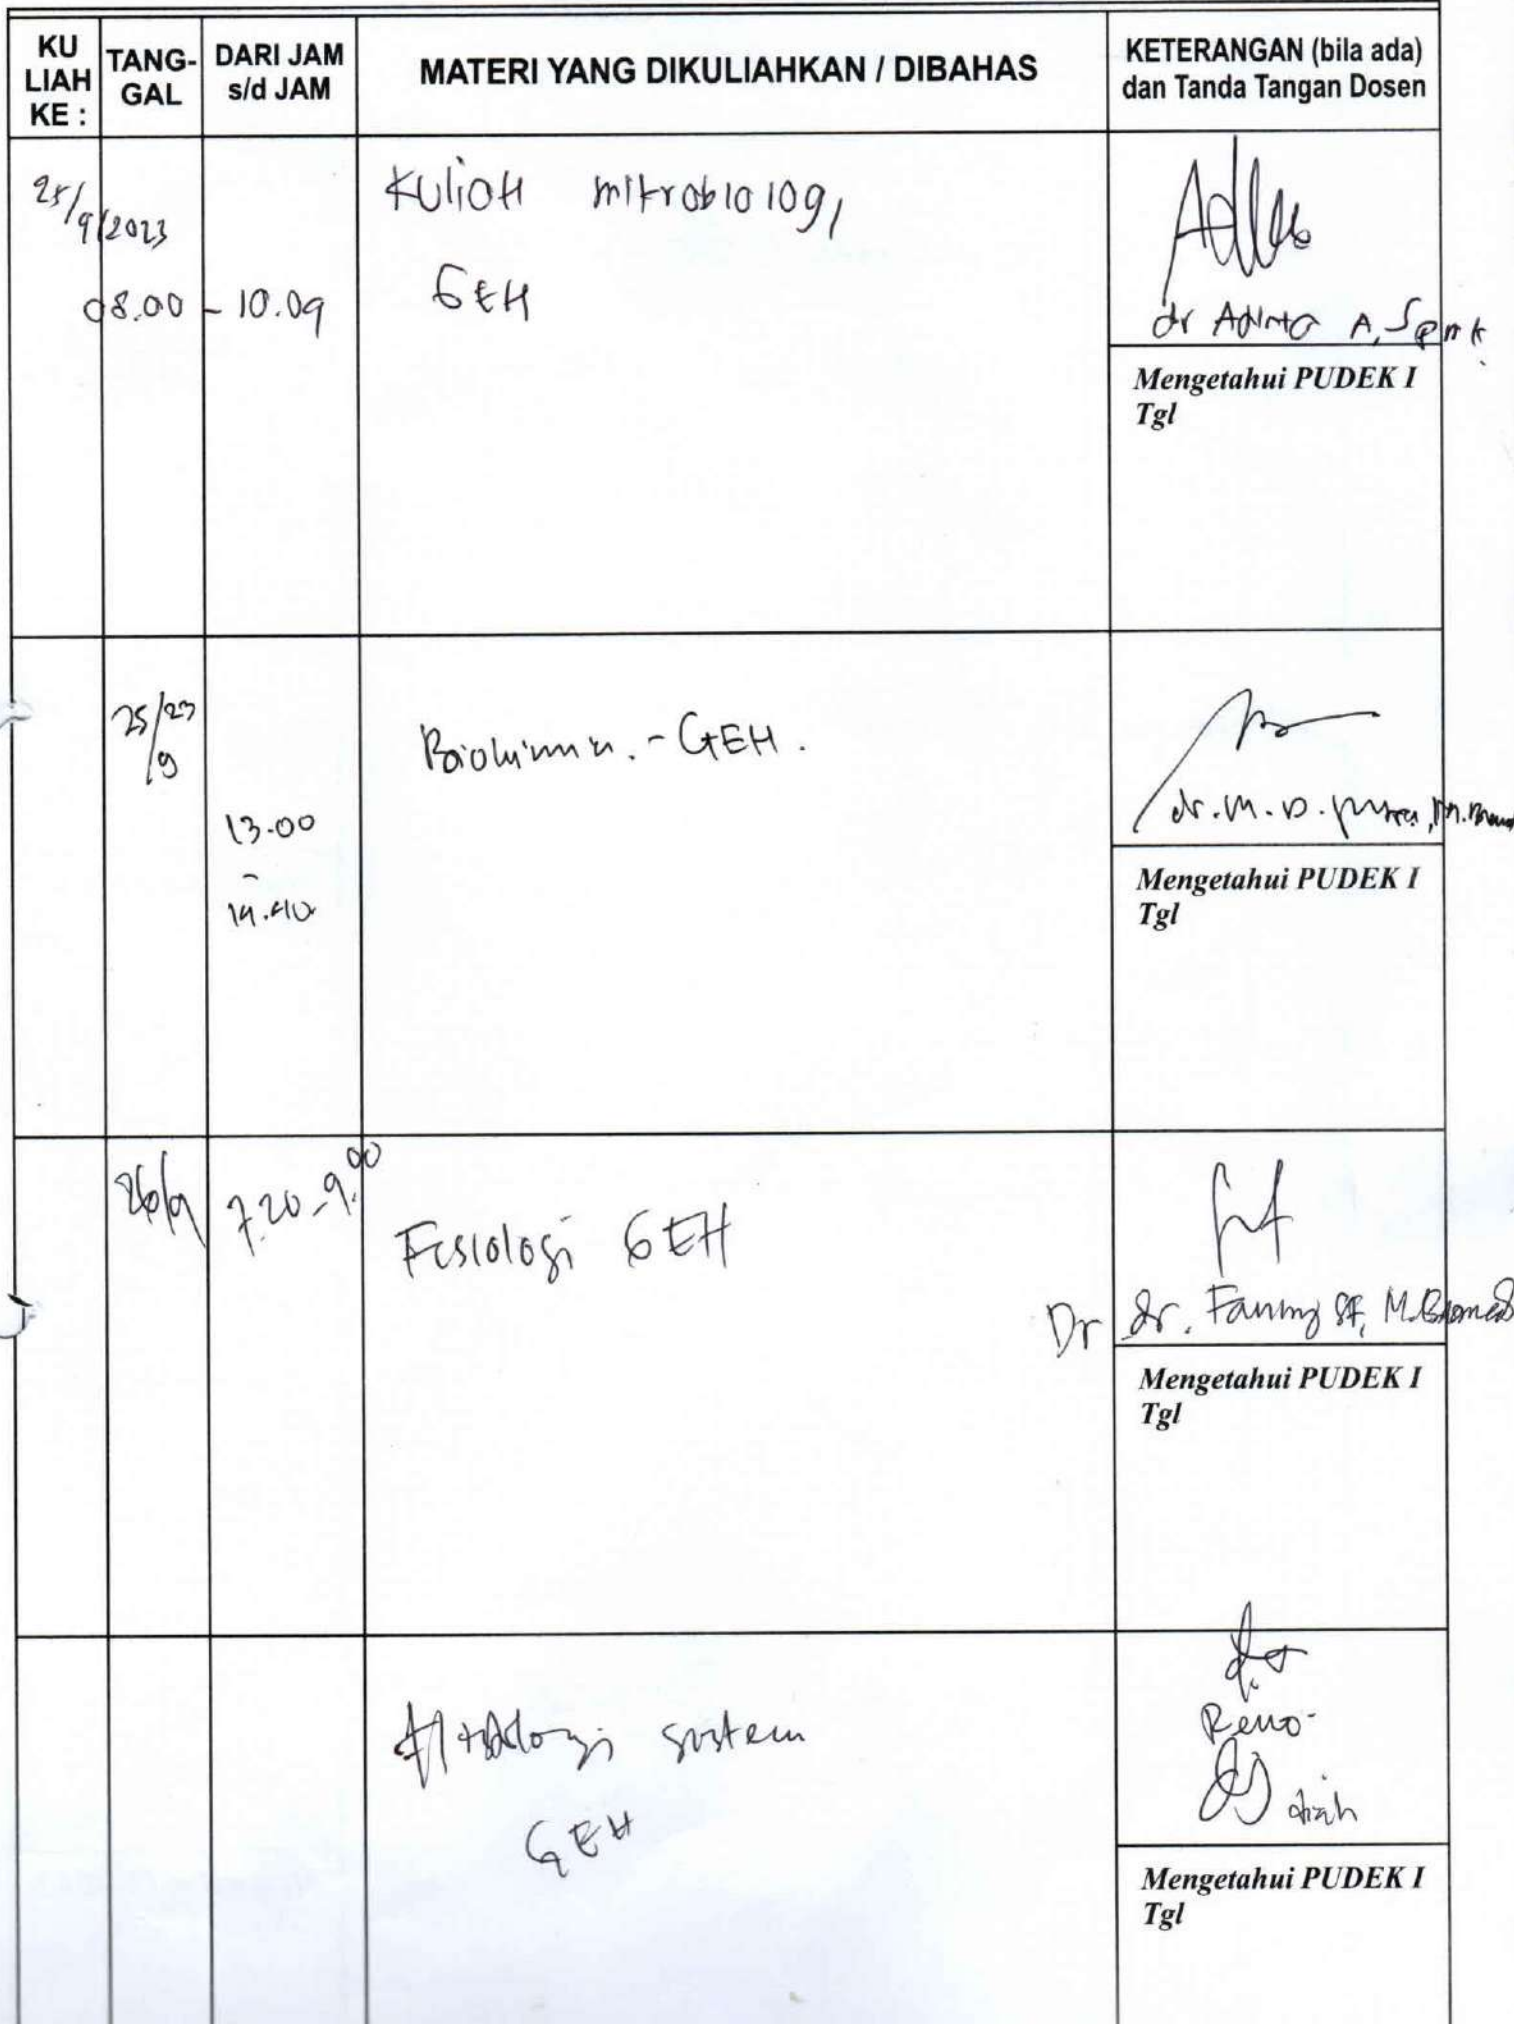 KU LIAH KE :
TANG-GAL
DARI JAM s/d JAM
MATERI YANG DIKULIAHKAN / DIBAHAS
KETERANGAN (bila ada) dan Tanda Tangan Dosen
25/9/2023
Kuliah mikrobiologi
08.00 - 10.09
GEH
dr A, SpMK
Mengetahui PUDEK I
Tgl
25/9/23
Biokimia. - GEH.
13.00
-
14.40
dr. M. D. Putra, M.Biomed
Mengetahui PUDEK I
Tgl
26/9
7.20 - 9.00
Fisiologi GEH
Dr dr. Fanny SF, M.Biomed
Mengetahui PUDEK I
Tgl
sistem
GEH
Reno
diah
Mengetahui PUDEK I
Tgl